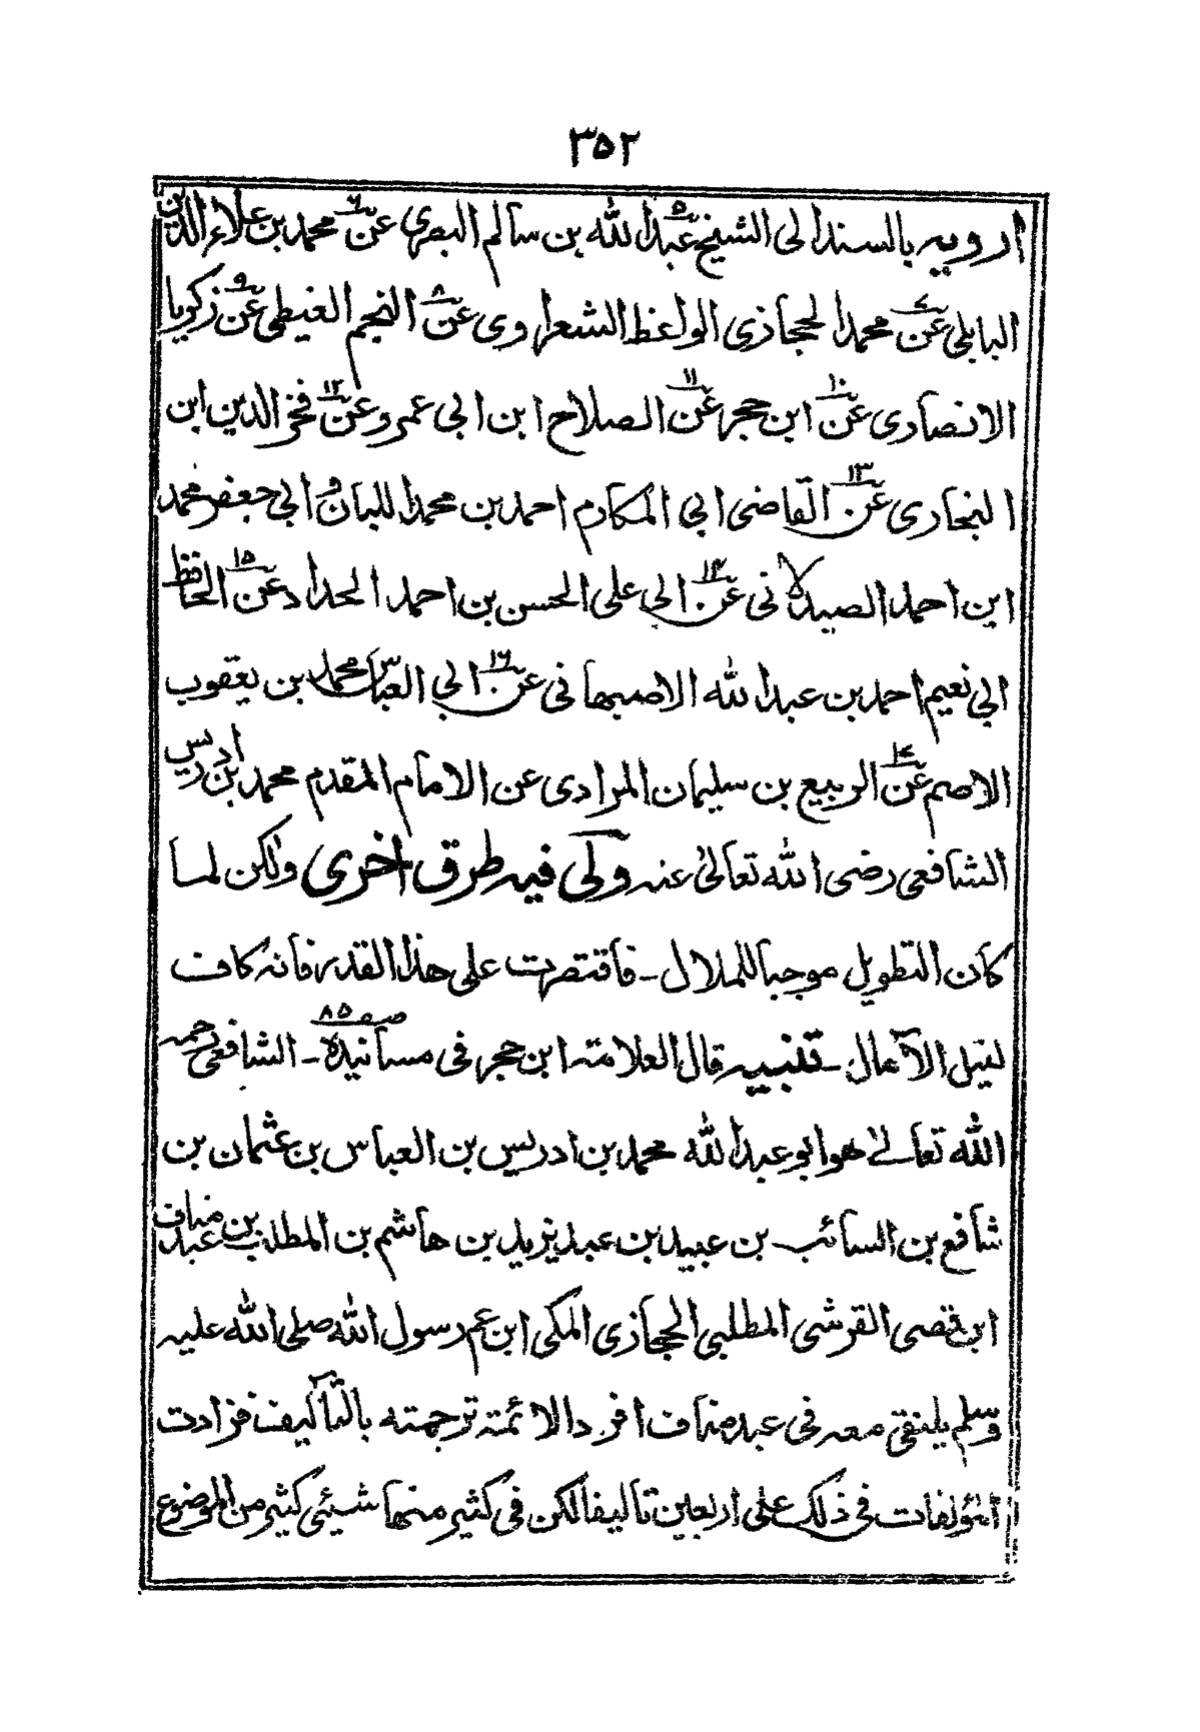 ٣٥٢
ارويه بالسند الى الشيخ عبد الله بن سالم البصرى عن محمد بن علاء الدين
البابلي عن محمد الحجازي الواعظ الشعراوي عن النجم الغيطي عن زكريا
الانصارى عن ابن حجر عن الصلاح ابن ابى عمرو عن فخر الدين ابن
البخارى عن القاضى ابي المكارم احمد بن محمد اللبان و ابي جعفر محمد
ابن احمد الصيدلانى عن ابي على الحسن بن احمد الحداد عن الحافظ
ابي نعيم احمد بن عبد الله الاصبهانى عن ابي العباس محمد بن يعقوب
الاصم عن الربيع بن سليمان المرادى عن الامام المقدم محمد بن ادريس
الشافعى رضى الله تعالى عنه ولى فيه طرق اخرى ولكن لما
كان التطويل موجبا للملال ـ فاقتصرت على هذا القدر فانه كاف
لنيل الآمال ـ تنبيه قال العلامته ابن حجر فى مسانيده صه ٨٥ ـ الشافعى رحمه
الله تعالے هو ابو عبد الله محمد بن ادريس بن العباس بن عثمان بن
شافع بن السائب بن عبيد بن عبد يزيد بن هاشم بن المطلب بن عبد مناف
ابن قصى القرشى المطلبي الحجازى المكى ابن عم رسول الله صلى الله عليه
وسلم يلتقي معه فى عبد مناف افرد الائمته ترجمته بالتآليف فزادت
المؤلفات فى ذلك على اربعين تاليفا لكن فى كثير منها شيئى كثير من الموضوع